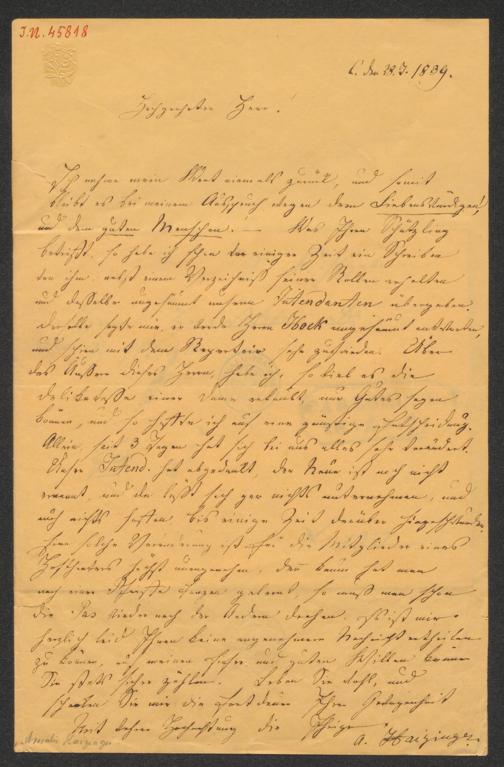 I.N. 45818
C. den 28. 3. 1839.
Hochgeehrter Herr!
Ich nehme mein Wort niemals zurück, und somit
bleibt es bei meinem Ausspruch wegen dem Liebenswürdigen,
und dem guten Menschen. — Was Ihren Schützling
betrifft, so habe ich schon vor einiger Zeit ein Schreiben
von ihm nebst einem Verzeichniß seiner Rollen erhalten
und dasselbe ungesäumt unserm Intendanten übergeben.
Derselbe sagte mir, er werde Herrn Bock ungesäumt antworten,
und schien mit dem Repertoir sehr zufrieden. Über
das Äussere dieses Herrn habe ich, so viel es die
Delikatesse einer Dame erlaubt, nur Gutes sagen
können, und so hoffte ich auf eine günstige Entscheidung.
Allein, seit 3 Tagen hat sich bei uns alles sehr verändert.
Unser Intend. hat abgedankt, der Neue ist noch nicht
ernannt, und da läßt sich gar nichts unternehmen, und
auch nichts hoffen, bis einige Zeit darüber
Eine solche Veränderung ist für die Mitglieder eines
Hoftheaters höchst unangenehm, denn kaum hat man
nach einer Pfeiffe tanzen gelernt, so muß man schon
die Pas wieder nach der andern drehen. Es ist mir
herzlich leid Ihnen keine angenehmere Nachricht ertheilen
zu können, auf meinen guten Willen können
Sie stets sicher zählen. Leben Sie wohl, und
schenken Sie mir die Fortdauer Ihrer Gewogenheit
Mit wahrer Hochachtung die Ihrige
A. Haizinger
Amalie Haizinger